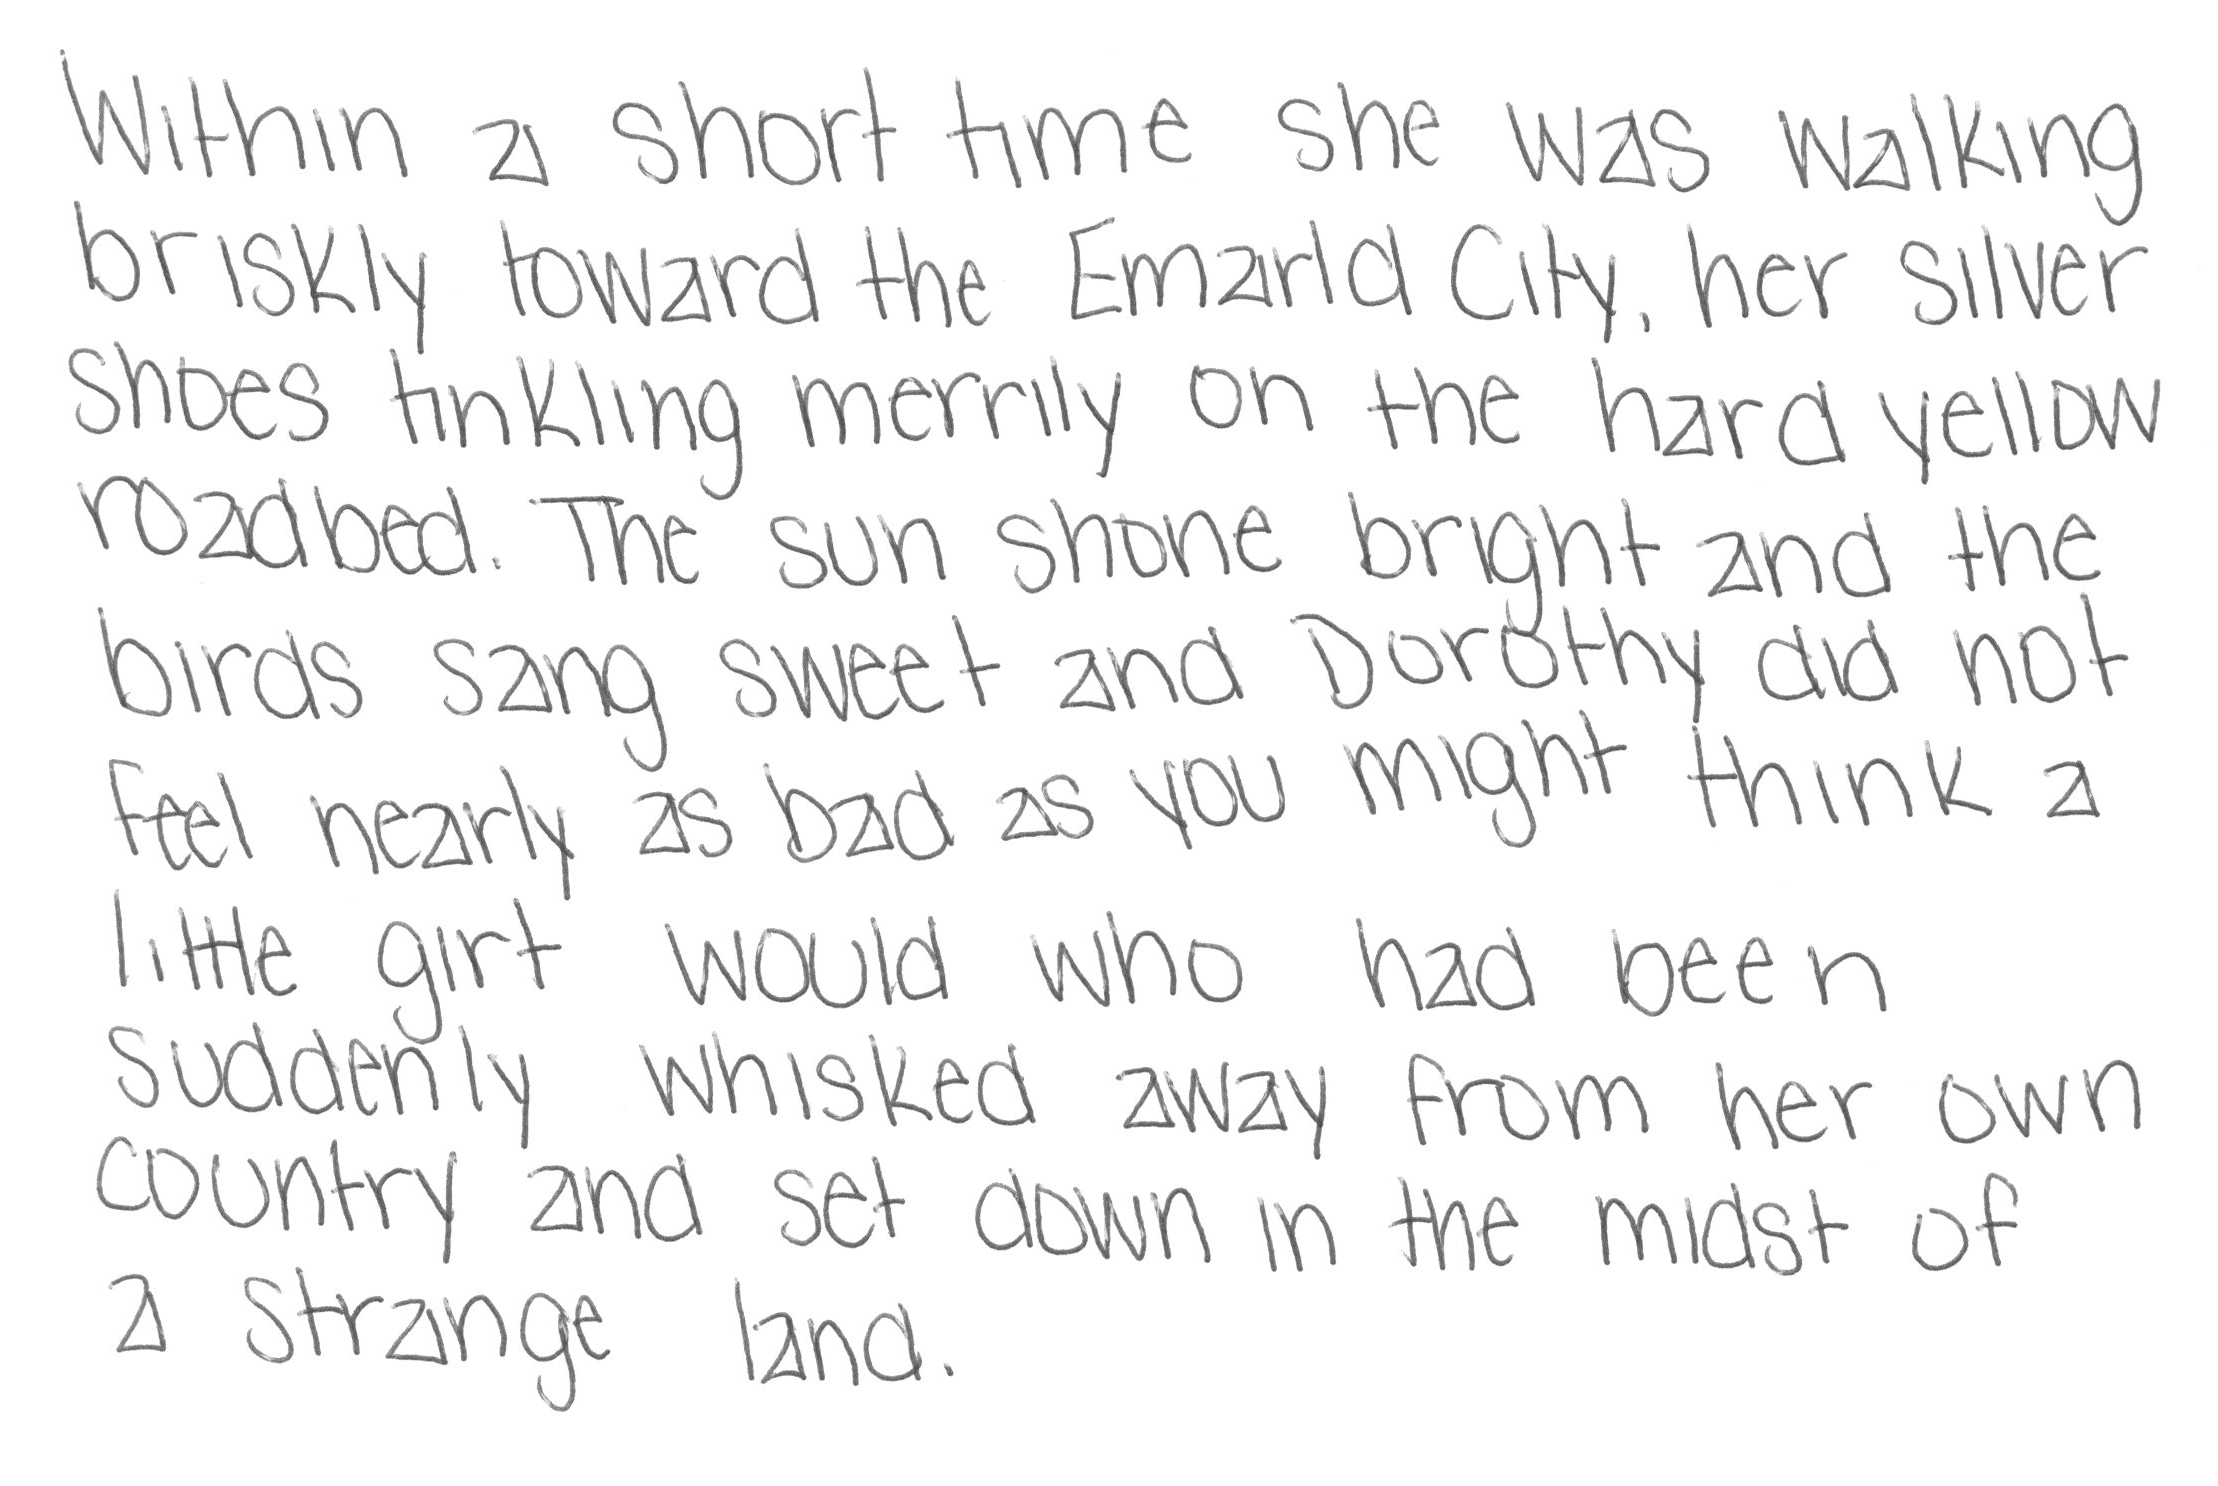 Within a short time she was walking
briskly toward the Emarld City, her silver
shoes tinkling merrily on the hard yellow
roadbed. The sun shone bright and the
birds sang sweet and Dorothy did not
feel nearly as bad as you might think a
little girt would who had been
suddenly whisked away from her own
country and set down in the midst of
a strange land.